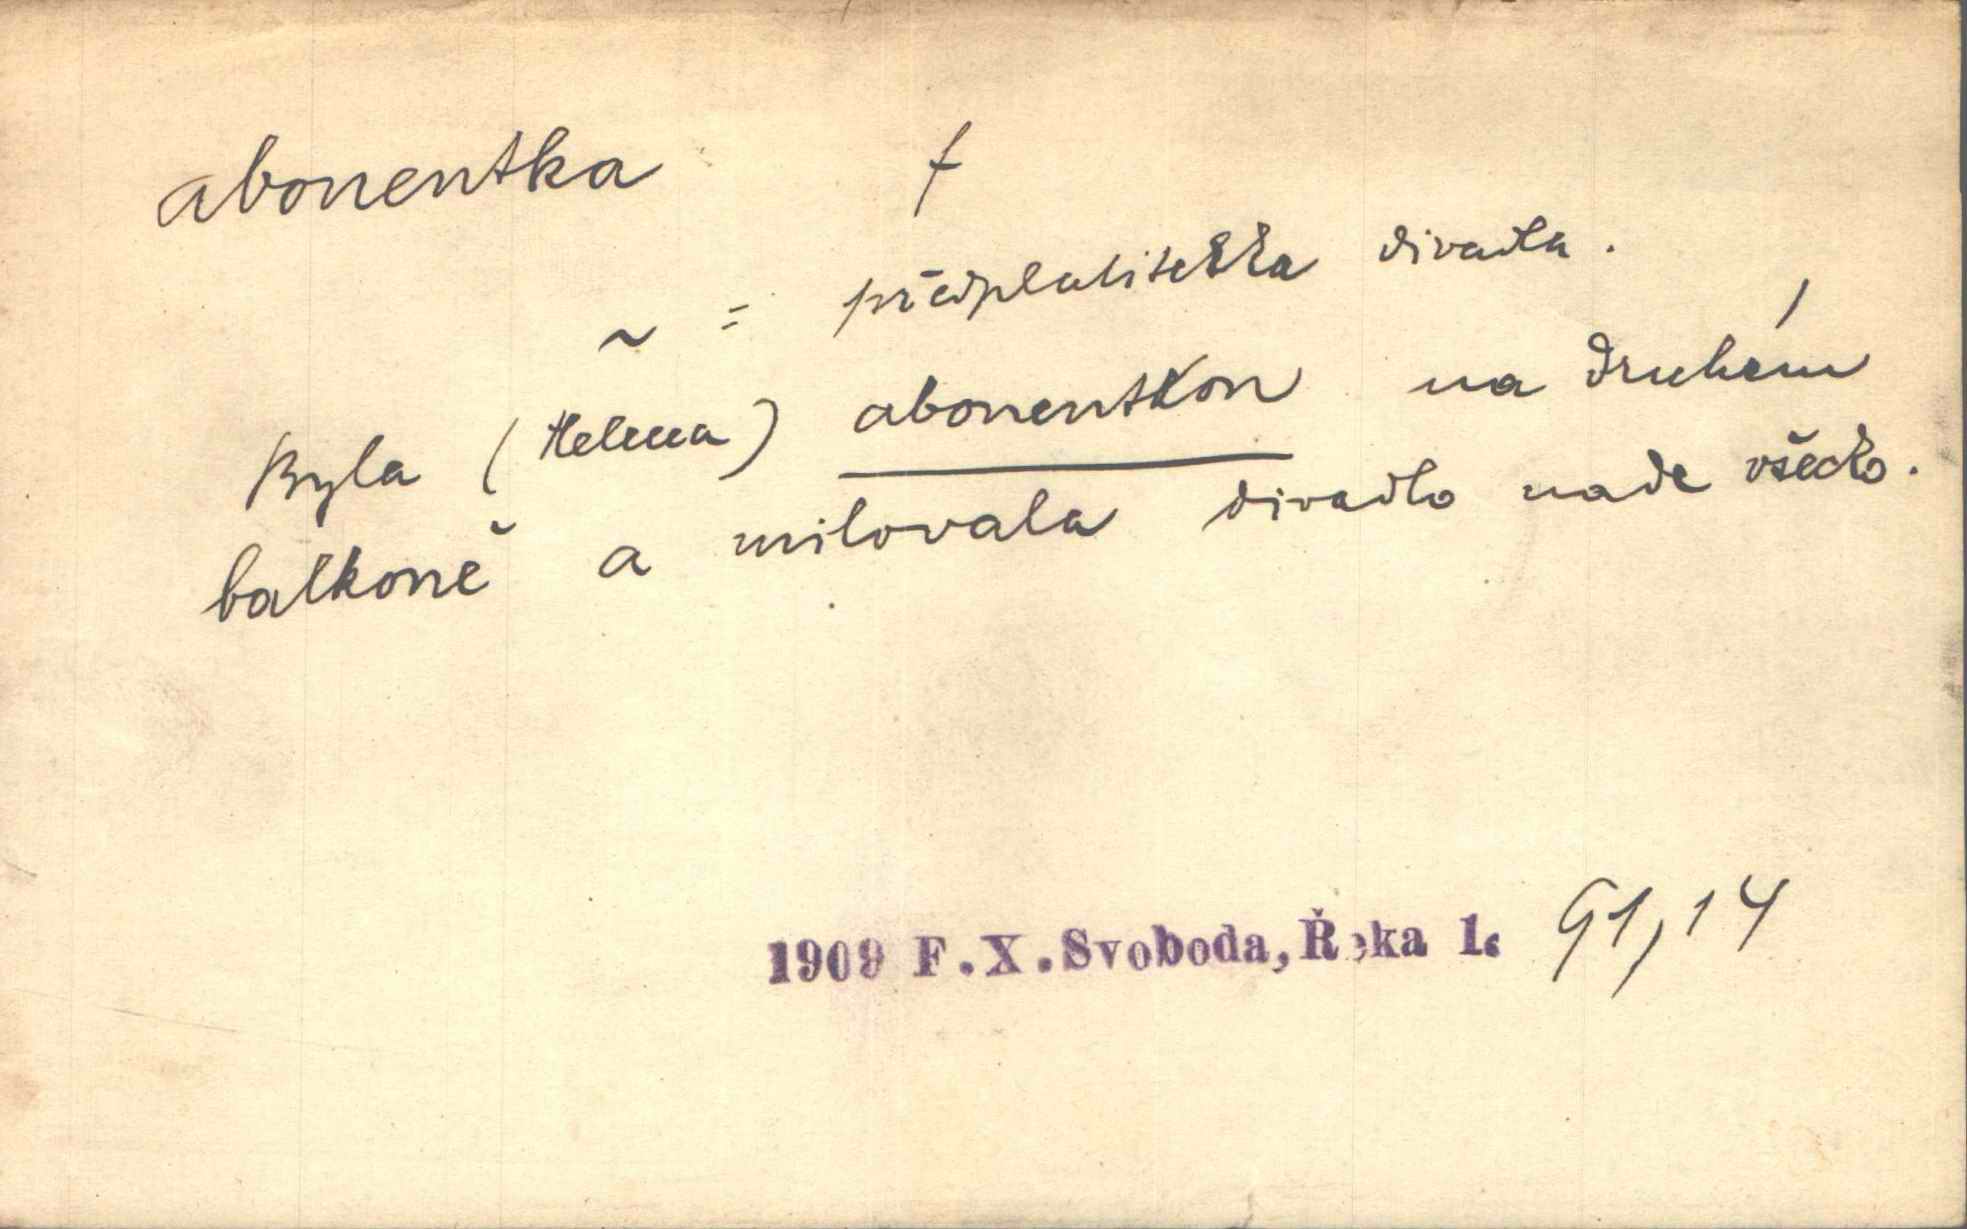 abonentka f
~ = předplatitelka divadla.
Byla (Helena) abonentkou na druhém
balkoně a milovala divadlo nade všecko.
1909 F.X.Svoboda, Řeka 1. 91,14